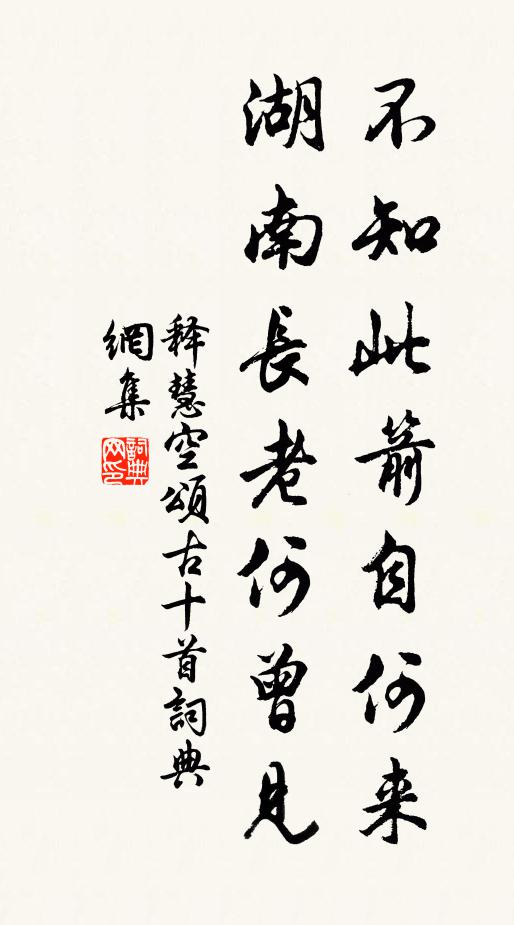 不知此箭自何来
湖南長老何曾見
释慧空頌古十首詞典
網集
詞典网印